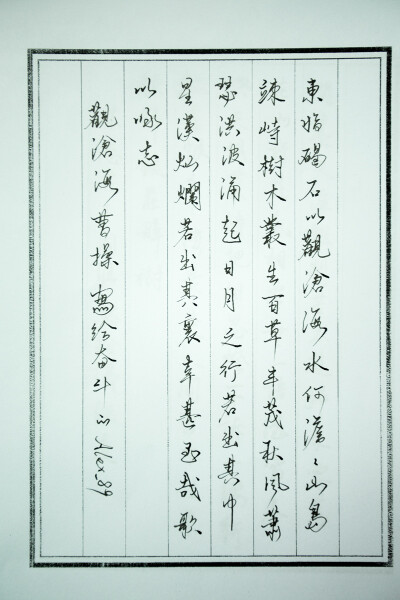 東臨碣石以觀滄海水何澹〻山島
竦峙樹木叢生百草丰茂秋風蕭
瑟洪波涌起日月之行若出其中
星漢灿爛若出其裏幸甚至哉歌
以咏志
觀滄海曹操 寫给奋斗的Alex.89